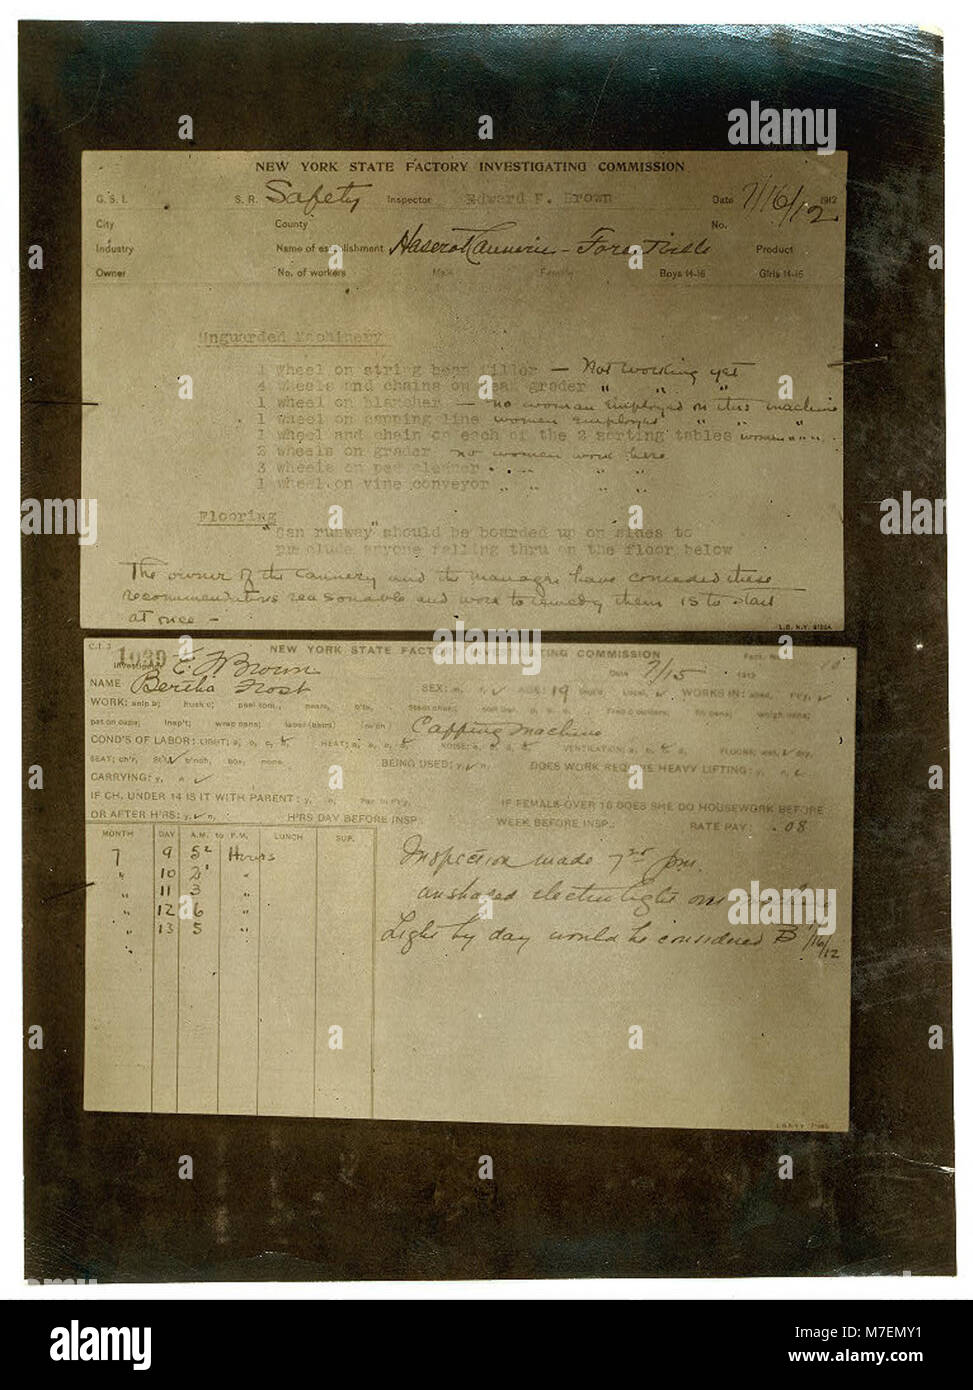 NEW YORK STATE FACTORY INVESTIGATING COMMISSION
G. S. I. S. R. Safety Inspector Edward F. Brown Date 7/16/12 1912
City County No.
Industry Name of establishment Haserot Canneries - Forestville Product
Owner No. of workers Male Female Boys 14-16 Girls 14-16
Unguarded Machinery
1 wheel on string bean filler - Not working yet
4 wheels and chains on bean grader " " "
1 wheel on blancher - no woman employed on this machine
1 wheel on capping line women employed " " "
1 wheel and chain on each of the 2 sorting tables women " " "
2 wheels on grader no women work here
3 wheels on pea cleaner " " " "
1 wheel on vine conveyor " " " "
Flooring
"Can runway" should be boarded up on sides to
preclude anyone falling thru on the floor below
The owner of the cannery and the manager have conceded these
recommendations reasonable and work to remedy them is to start
at once -
C.I.3 NEW YORK STATE FACTORY INVESTIGATING COMMISSION
1939 Investigator E. F. Brown Date 7/15 1912
NAME Bertha Frost SEX: m, f, ✓ AGE: 19 WORKS IN: shed, Fty, ✓
WORK: snip b; husk c;
Capping Machine
COND'S OF LABOR: LIGHT: a, b, c, d HEAT: a, b, c, d NOISE: a, b, c, d VENTILATION: a, b, c, d FLOORS: wet, dry,
SEAT: ch'r, St'l, b'nch, box, none BEING USED: y, n, DOES WORK REQUIRE HEAVY LIFTING: y, n,
CARRYING: y, n ✓
IF CH. UNDER 14 IS IT WITH PARENT: y, n, IF FEMALE OVER 16 DOES SHE DO HOUSEWORK BEFORE
OR AFTER H'RS: y, n, H'RS DAY BEFORE INSP: WEEK BEFORE INSP: RATE PAY: .08
MONTH DAY A.M. to P.M. LUNCH SUP.
7 9 Hours
" 10 "
" 11 3 "
" 12 6 "
" 13 5 "
Inspection made 7 30 pm.
unshaded electric light over machine
Light by day would be considered B 7/16/12
alamy
Image ID: M7EMY1
www.alamy.com